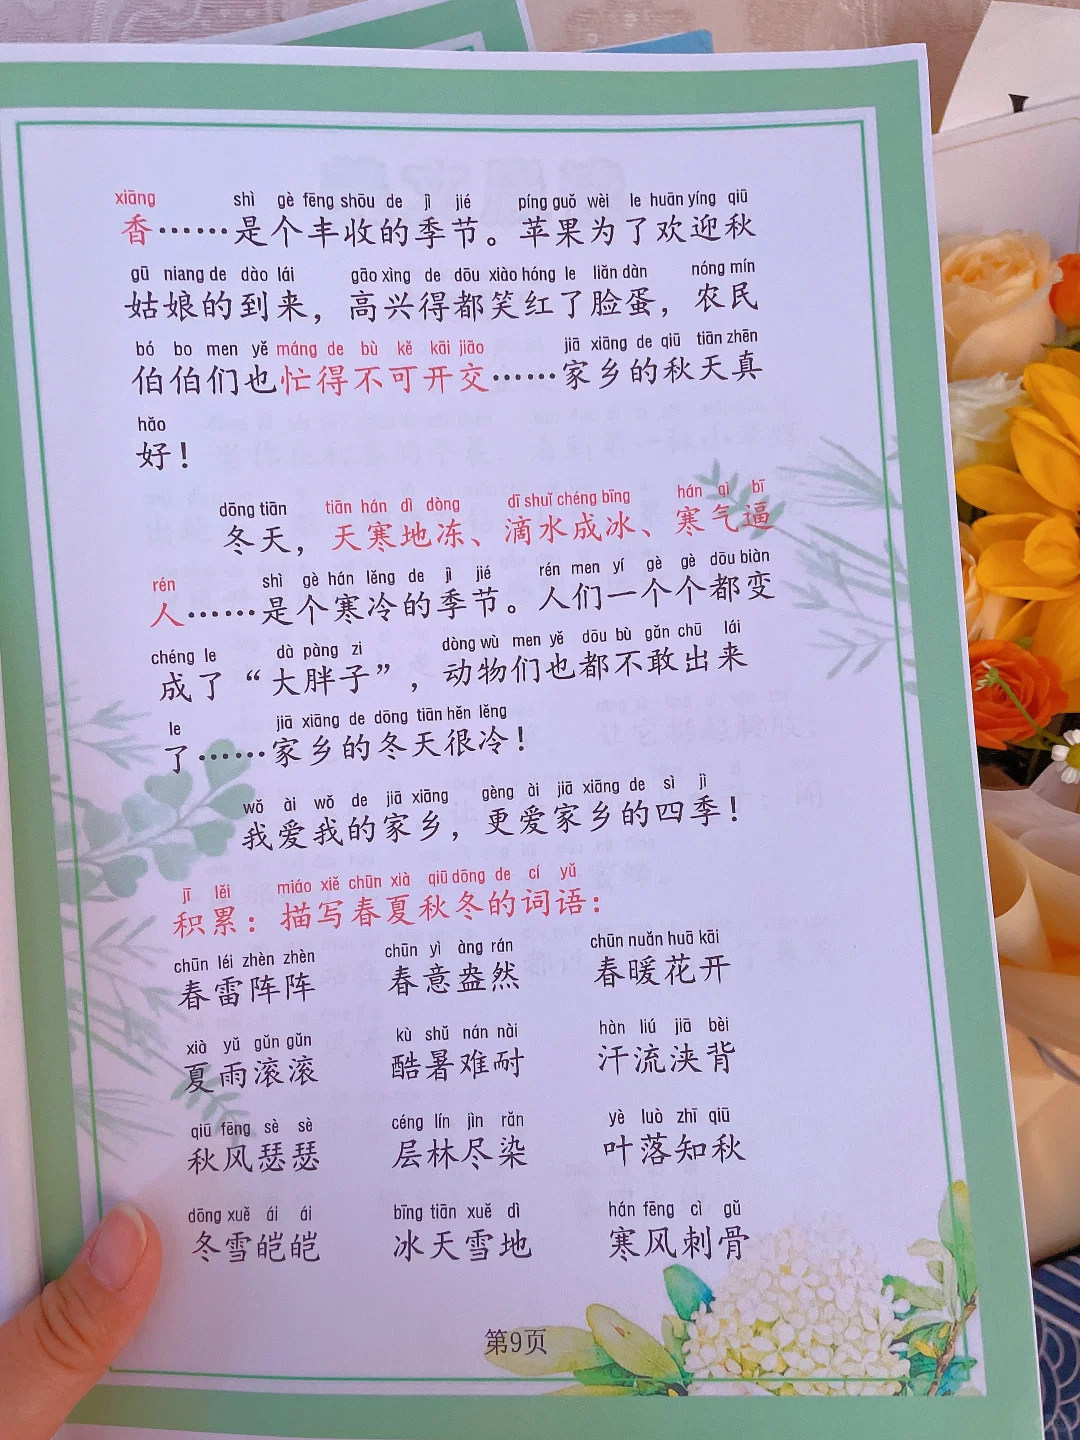 xiāng shì gè fēng shōu de jì jié píng guǒ wèi le huān yíng qiū
香……是个丰收的季节。苹果为了欢迎秋
gū niang de dào lái gāo xìng de dōu xiào hóng le liǎn dàn nóng mín
姑娘的到来，高兴得都笑红了脸蛋，农民
bó bo men yě máng de bù kě kāi jiāo jiā xiāng de qiū tiān zhēn
伯伯们也忙得不可开交……家乡的秋天真
hǎo
好！
dōng tiān tiān hán dì dòng dī shuǐ chéng bīng hán qì bī
冬天，天寒地冻、滴水成冰、寒气逼
rén shì gè hán lěng de jì jié rén men yí gè gè dōu biàn
人……是个寒冷的季节。人们一个个都变
chéng le dà pàng zi dòng wù men yě dōu bù gǎn chū lái
成了“大胖子”，动物们也都不敢出来
le jiā xiāng de dōng tiān hěn lěng
了……家乡的冬天很冷！
wǒ ài wǒ de jiā xiāng gèng ài jiā xiāng de sì jì
我爱我的家乡，更爱家乡的四季！
jī lěi miáo xiě chūn xià qiū dōng de cí yǔ
积累：描写春夏秋冬的词语：
chūn léi zhèn zhèn chūn yì àng rán chūn nuǎn huā kāi
春雷阵阵 春意盎然 春暖花开
xià yǔ gǔn gǔn kù shǔ nán nài hàn liú jiā bèi
夏雨滚滚 酷暑难耐 汗流浃背
qiū fēng sè sè céng lín jìn rǎn yè luò zhī qiū
秋风瑟瑟 层林尽染 叶落知秋
dōng xuě ái ái bīng tiān xuě dì hán fēng cì gǔ
冬雪皑皑 冰天雪地 寒风刺骨
第9页